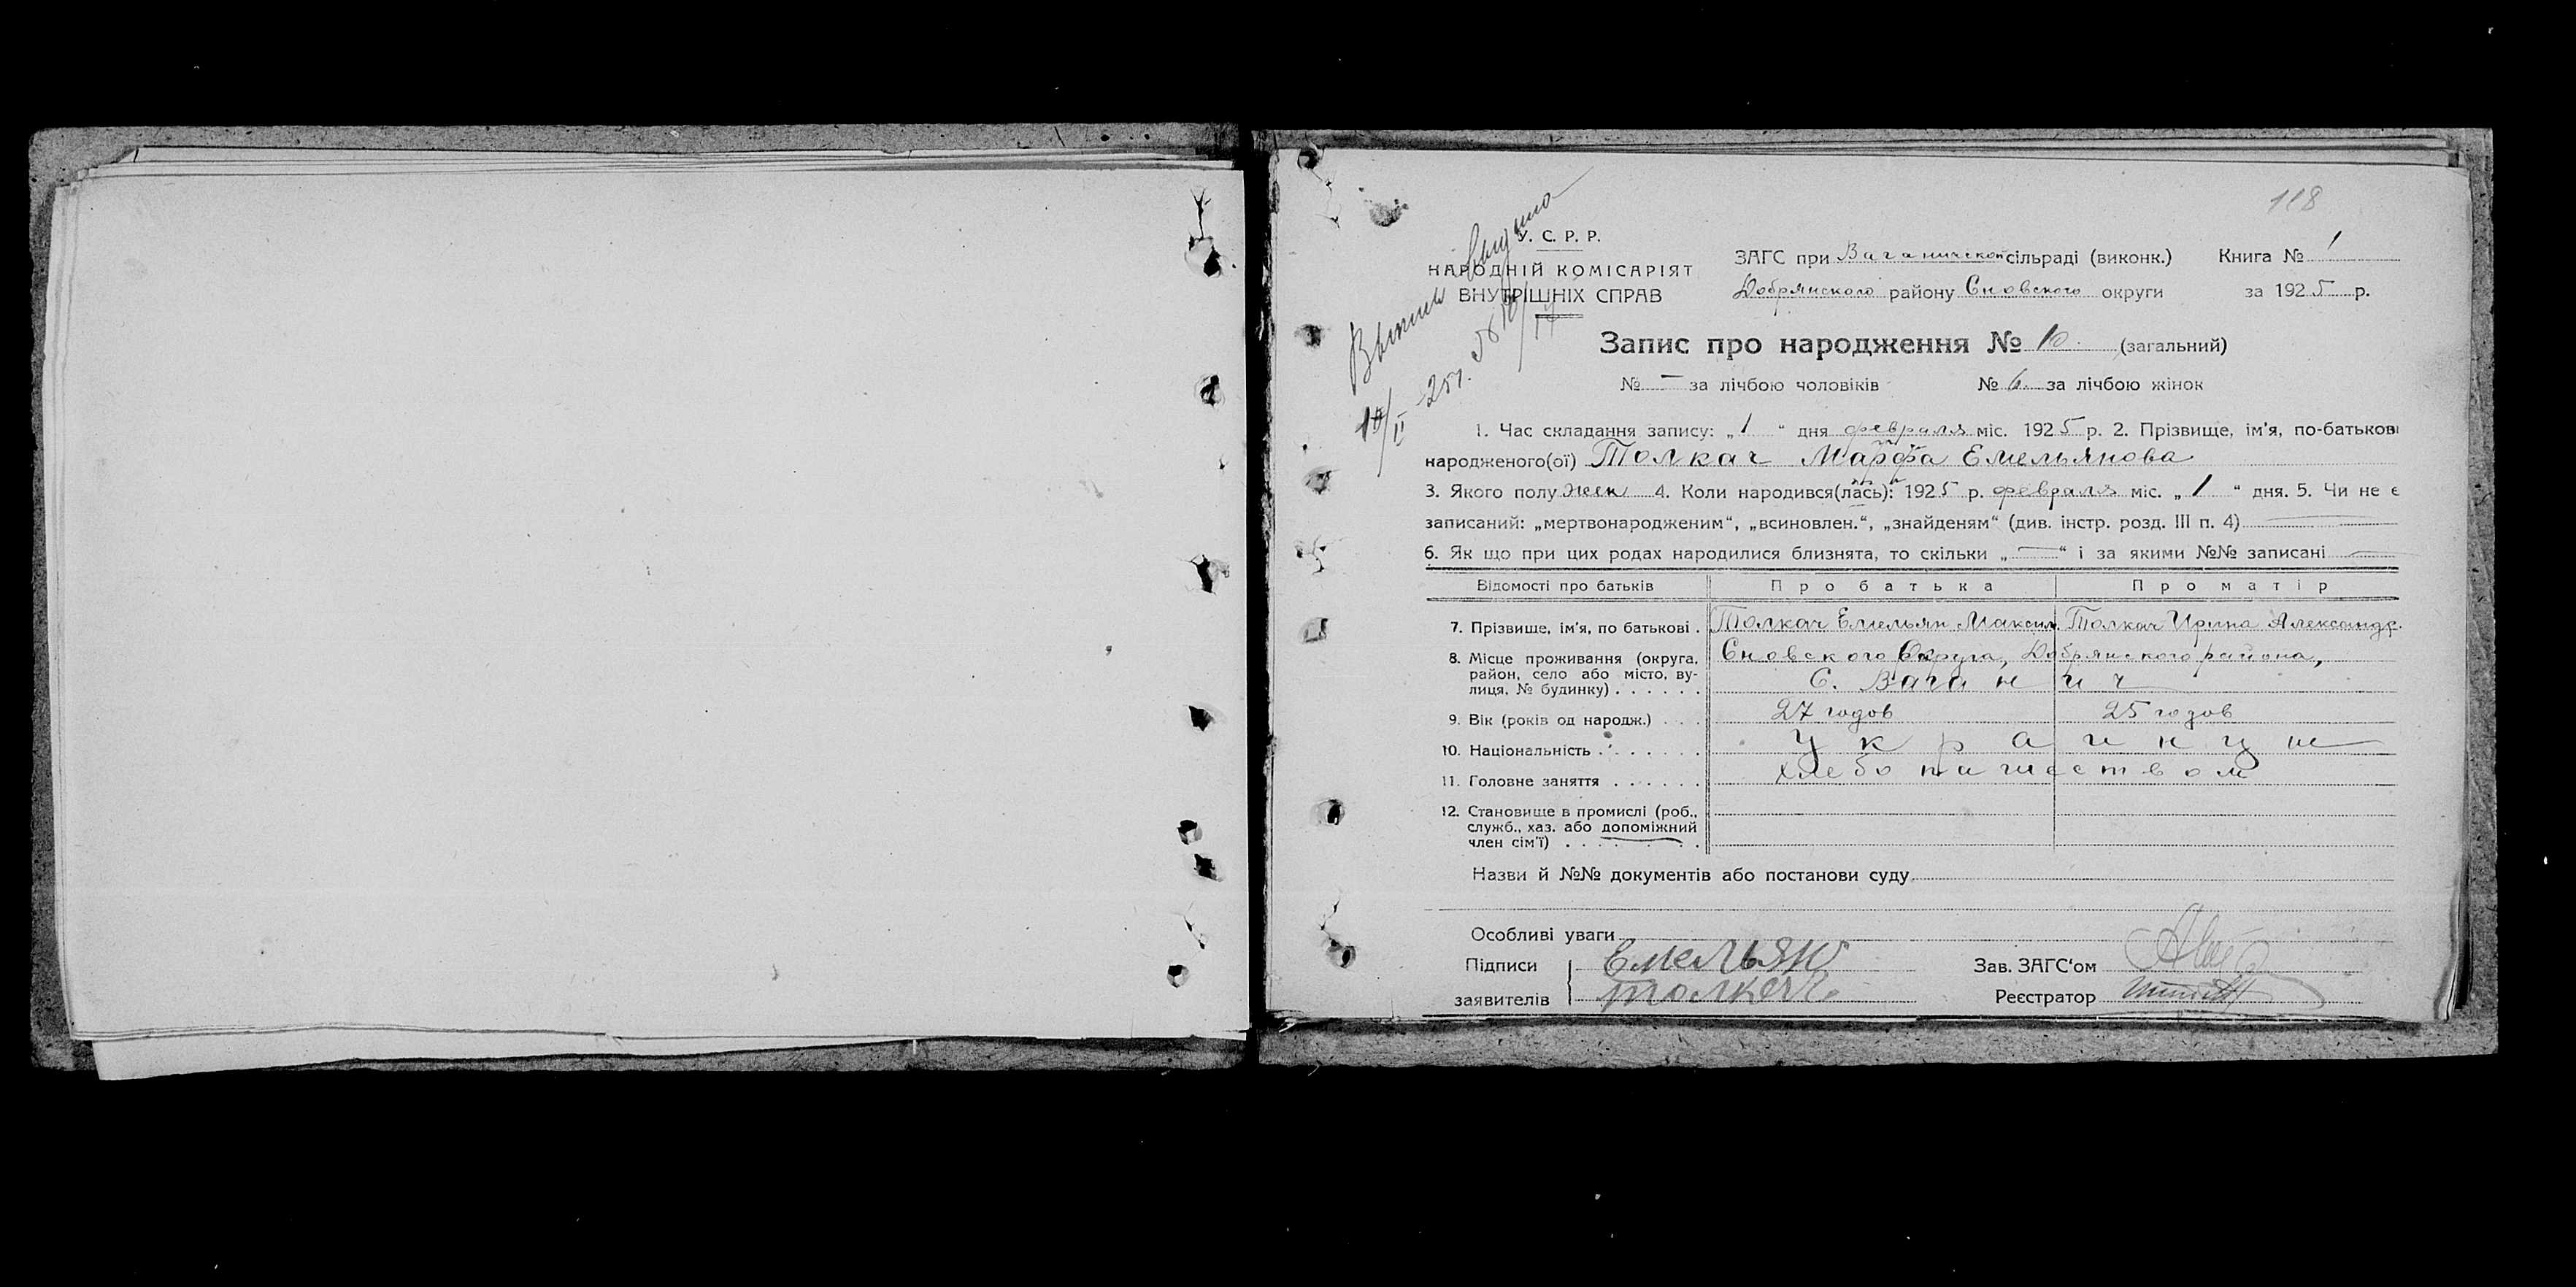 118
Выпись выдана
10/II -25г. №10/17
У. С. Р. Р.
НАРОДНІЙ КОМІСАРІЯТ
ВНУТРІШНІХ СПРАВ
ЗАГС при Ваганической сільраді (виконк.) Книга № 1
Добрянского району Сновского округи за 1925 р.
Запис про народження № 10. (загальний)
№ — за лічбою чоловіків № 6 за лічбою жінок
1. Час складання запису: „1“ дня февраля міс. 1925 р. 2. Прізвище, ім'я, по-батькові
народженого(ої) Толкач Марфа Емельянова
3. Якого полу жен 4. Коли народився(лась): 1925 р. февраля міс. „1“ дня. 5. Чи не є
записаний: „мертвонародженим“, „всиновлен.“, „знайденям“ (див. інстр. розд. III п. 4) —
6. Як що при цих родах народилися близнята, то скільки „—“ і за якими №№ записані —
Відомості про батьків Про батька Про матір
7. Прізвище, ім'я, по батькові . Толкач Емельян Максим. Толкач Ирина Александр.
8. Місце проживання (округа, Сновского Округа, Добрянского района,
район, село або місто, ву-
лиця, № будинку) . . . . . . С. Ваганич
9. Вік (років од народж.) . . . 27 годов 25 годов
10. Національність . . . . . . . Украинцы
11. Головне заняття . . . . . . хлебопашеством
12. Становище в промислі (роб.,
служб., хаз. або допоміжний
член сім'ї) . . . . . . .
Назви й №№ документів або постанови суду
Особливі уваги
Підписи Емельян Зав. ЗАГС'ом
заявителів толкач Реєстратор